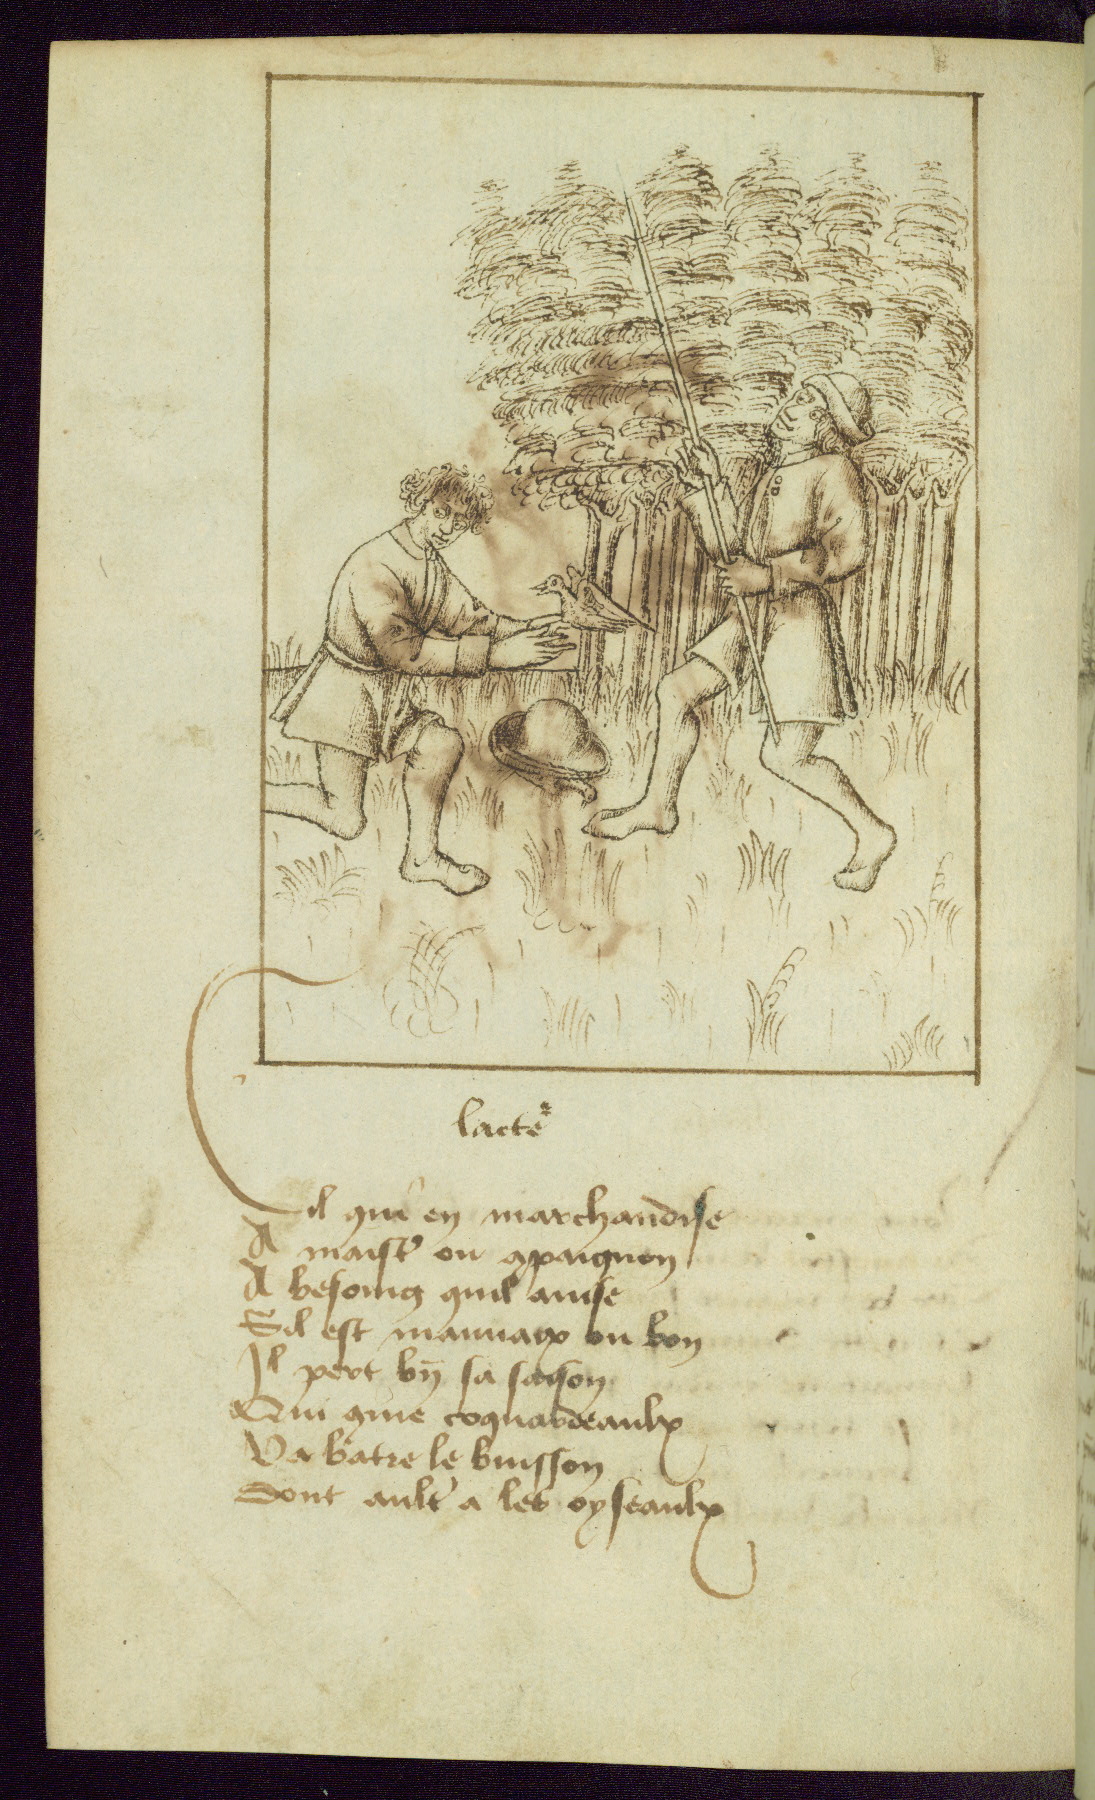 lacteᷣ
Cil qui en marchandise
A maistʼ ou ꝯpaignon
A besoing quil auise
Sil est mauuaix ou bon
Il pert bn̄ sa saison
Qui coquardeaulx
Va batre le buisson
Dont aultʼ a les oyseaulx